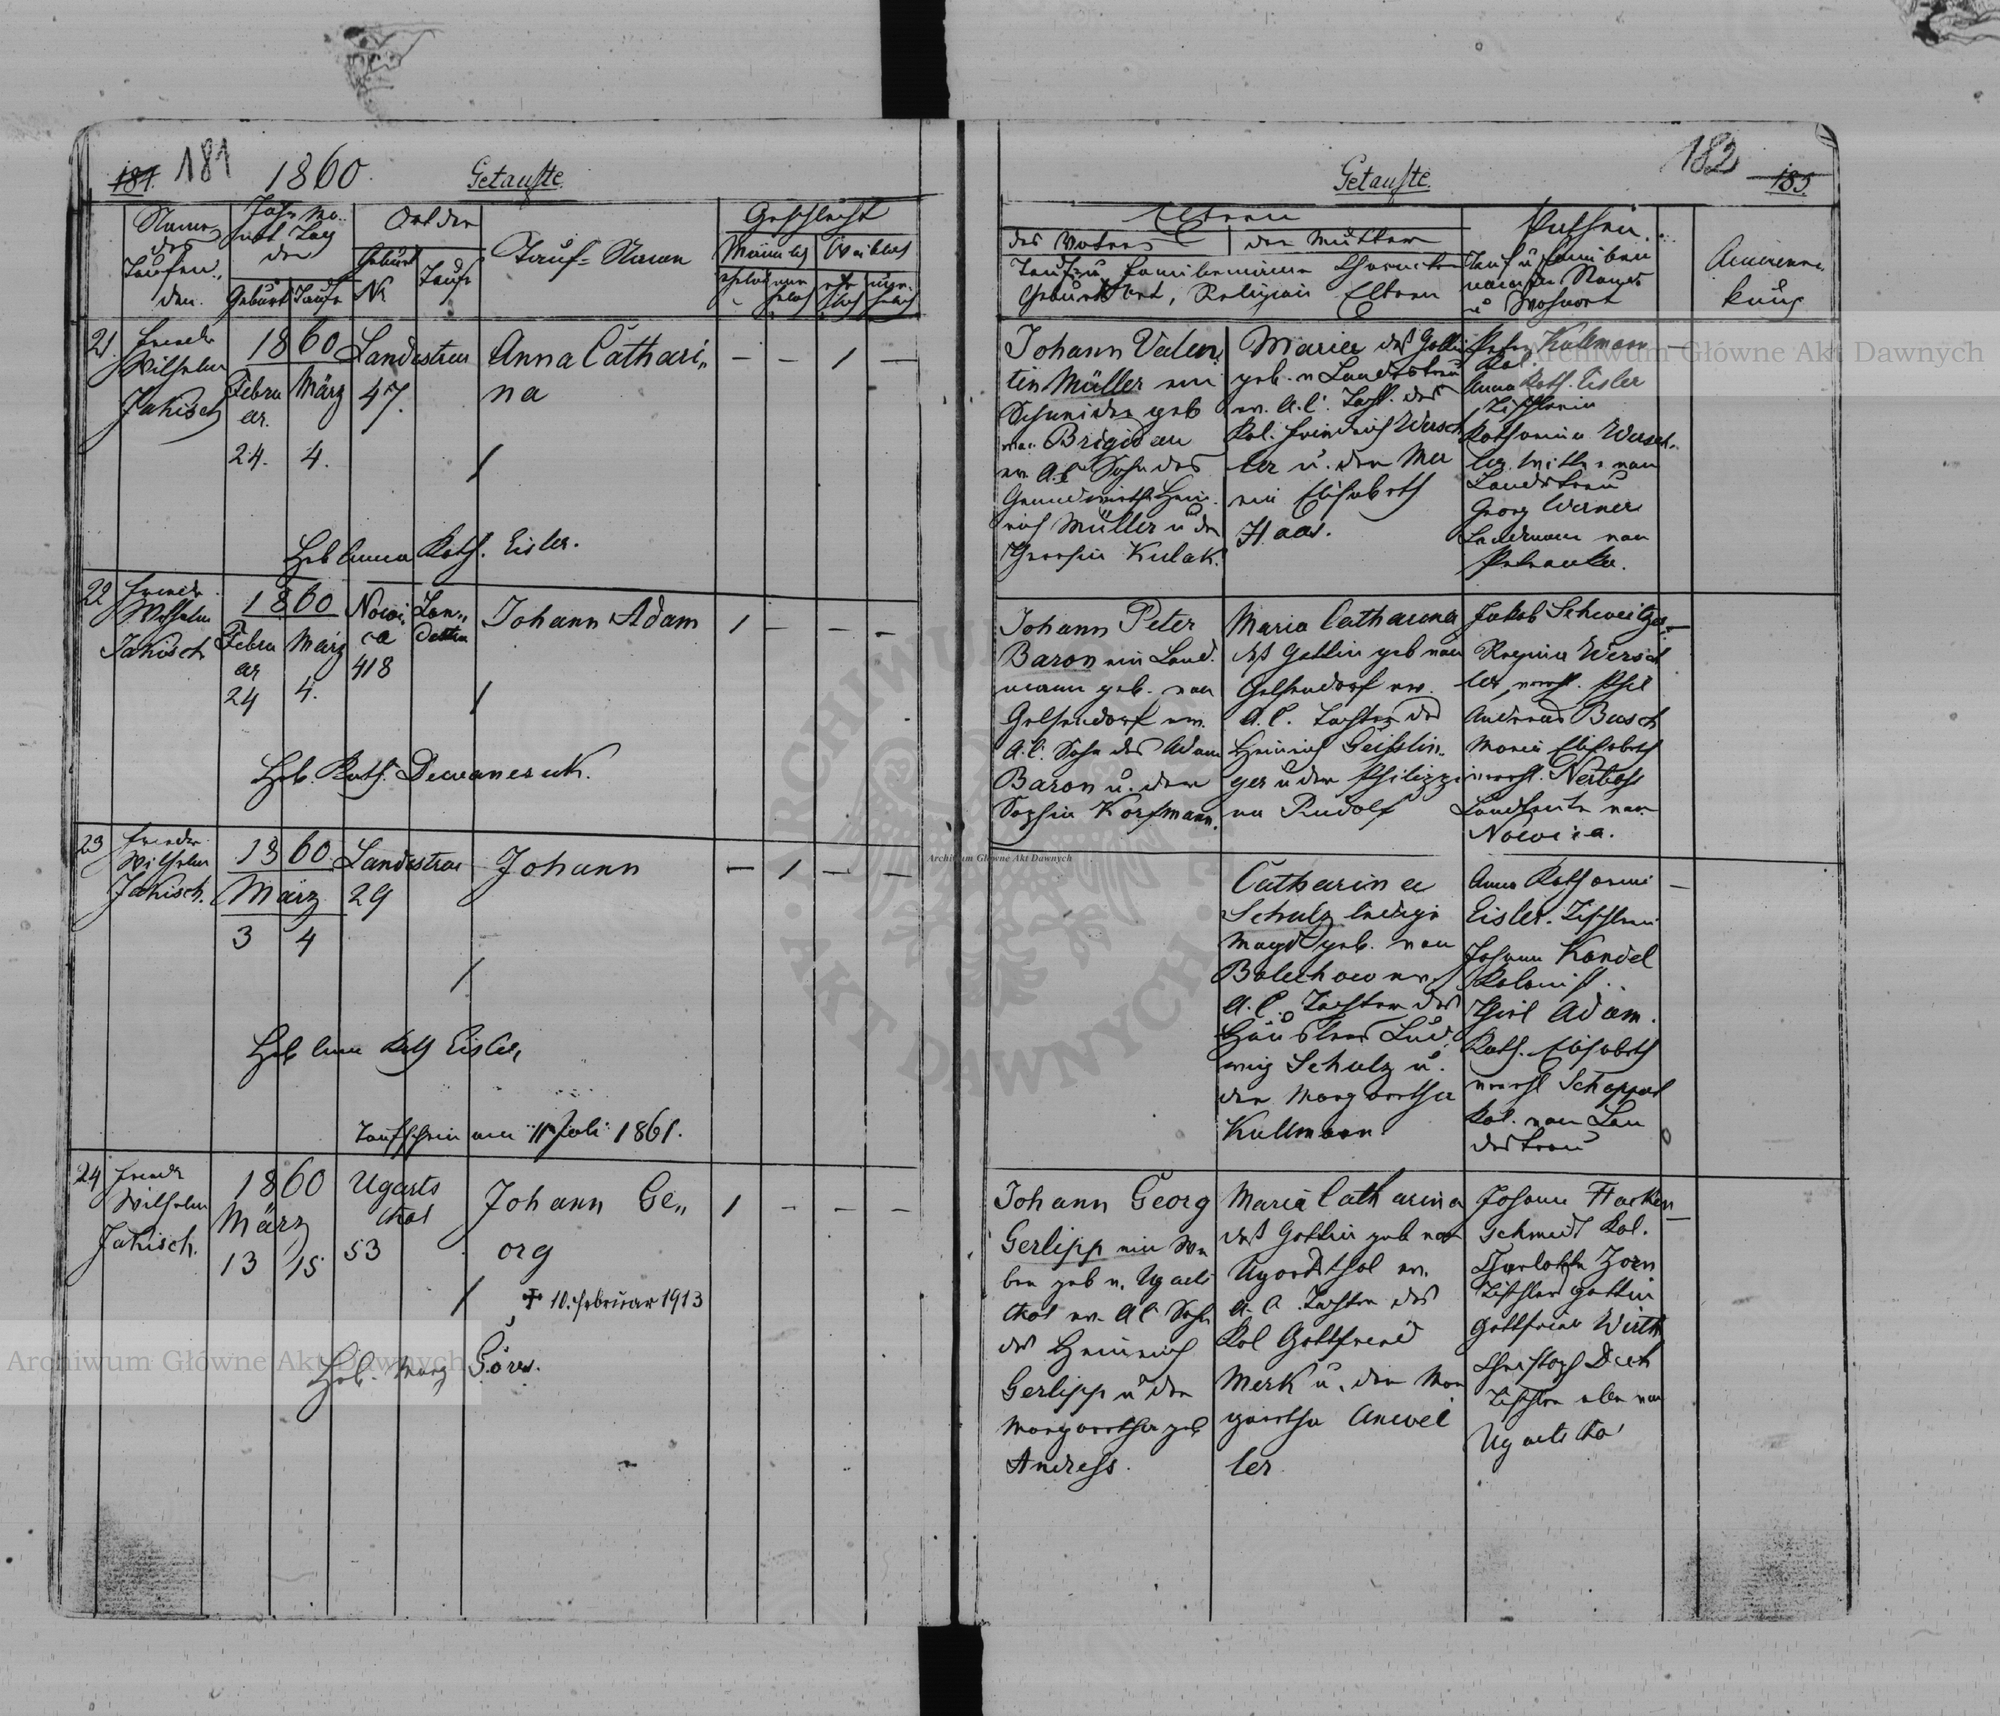 181. 181 1860. Getaufte.
Namen
des
Taufen„
den.
Jahr Mo„
nat Tag
der
Geburt Taufe
Ort der
Geburt
Nr
Taufe
Tauf-Namen
Geschlecht
Männlich Weiblich
21. Friedr
Wilhelm
Jakisch
1860
Februar
ar.
24.
März
4.
Landestreu
47.
Anna Cathari„
na
— — 1 —
Heb Anna Kath. Eisler.
22 Friedr
Wilhelm
Jakisch
1860
Febru
ar
24
März
4.
Nowi
ca
418
Lan„
destreu
Johann Adam
1 — — —
Heb. Kath. Dewaneszuk.
23 Friedr
Wilhelm
Jakisch.
1860
März
3 4
Landestreu
29
Johann
— 1 — —
Heb Anna Kath Eisler,
Taufschein am 11 Juli 1861.
24 Friedr
Wilhelm
Jakisch.
1860
März
13 15
Ugarts
thal
53
Johann Ge„
org
1 — — —
† 10. Februar 1913
Heb. Marg Göres.
Getaufte. 182 185.
Eltern
des Vaters der Mutter
Tauf u Familienname Charakter
Geburtsort, Religion Eltern
Pathen.
Tauf u Familien
namen Stand
u Wohnort
Anmer
kung
Johann Valen
tin Müller ein
Schneider geb
von Brigidau
ev. A. C. Sohn des
Grundwirth Hein
rich Müller u der
Theresia Kulak.
Maria dess Gattin
geb. v Landestreu
ev. A. C. Tocht. des
Kol. Friedrich Wersch
ler u. der Ma
ria Elisabeth
Haas.
Peter Kullmann
Kol.
Anna Kath. Eisler
Tischlerin
Katharina Wersch„
ler. Wittwe von
Landestreu
Georg Werner
Landmann von
Petranka.
Johann Peter
Baron ein Land.
mann geb. von
Gelsendorf ev.
A. C. Sohn des Adam
Baron u. der
Sophia Korfmann.
Maria Catharina
dess Gattin geb von
Gelsendorf ev.
A. C. Tochter des
Heinrich Geisslin„
ger u der Philippi
na Rudolf
Jakob Schweitzer
Regina Wersch
ler, vereh. Phil
Andreas Busch
Maria Elisabeth
vereh. Nerbass
Landleute von
Nowica.
Catharina
Schulz ledige
Magd geb. von
Bolechow ev.
A. C. Tochter des
Häuslers Lud„
wig Schulz u.
der Margaretha
Kullmann.
Anna Katharina
Eisler. Tischlerin
Johann Kandel
Kolonist
Phil Adam.
Kath. Elisabeth
vereh Scheppat
Kol. von Lan
destreu
Johann Georg
Gerlipp ein We
ber geb v. Ugarts
thal ev. AC Sohn
des Heinrich
Gerlipp u der
Margaretha geb
Andress.
Maria Catharina
dess Gattin geb von
Ugartsthal ev.
A. C. Tochter des
Kol Gottfried
Merk u. der Mar
garetha Anwei
ler.
Johann Harken
schmidt Kol.
Charlotte Zorn
Tischlers gattin
Gottfried Wirth
Christoph Dech
Tischler alle von
Ugartsthal
Archiwum Główne Akt Dawnych
Archiwum Główne Akt Dawnych
Archiwum Główne Akt Dawnych
ARCHIWUM
AKT DAWNYCH